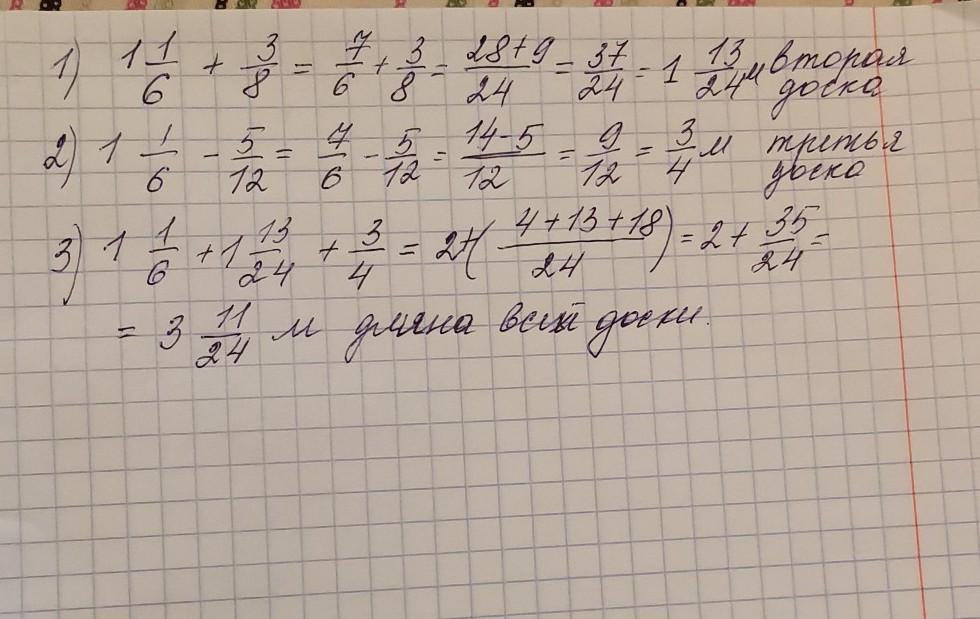 1) 1 1/6 + 3/8 = 7/6 + 3/8 = 28+9/24 = 37/24 = 1 13/24 м вторая доска
2) 1 1/6 - 5/12 = 7/6 - 5/12 = 14-5/12 = 9/12 = 3/4 м третья доска
3) 1 1/6 + 1 13/24 + 3/4 = 2+(4+13+18/24) = 2+ 35/24 =
= 3 11/24 м длина всей доски.